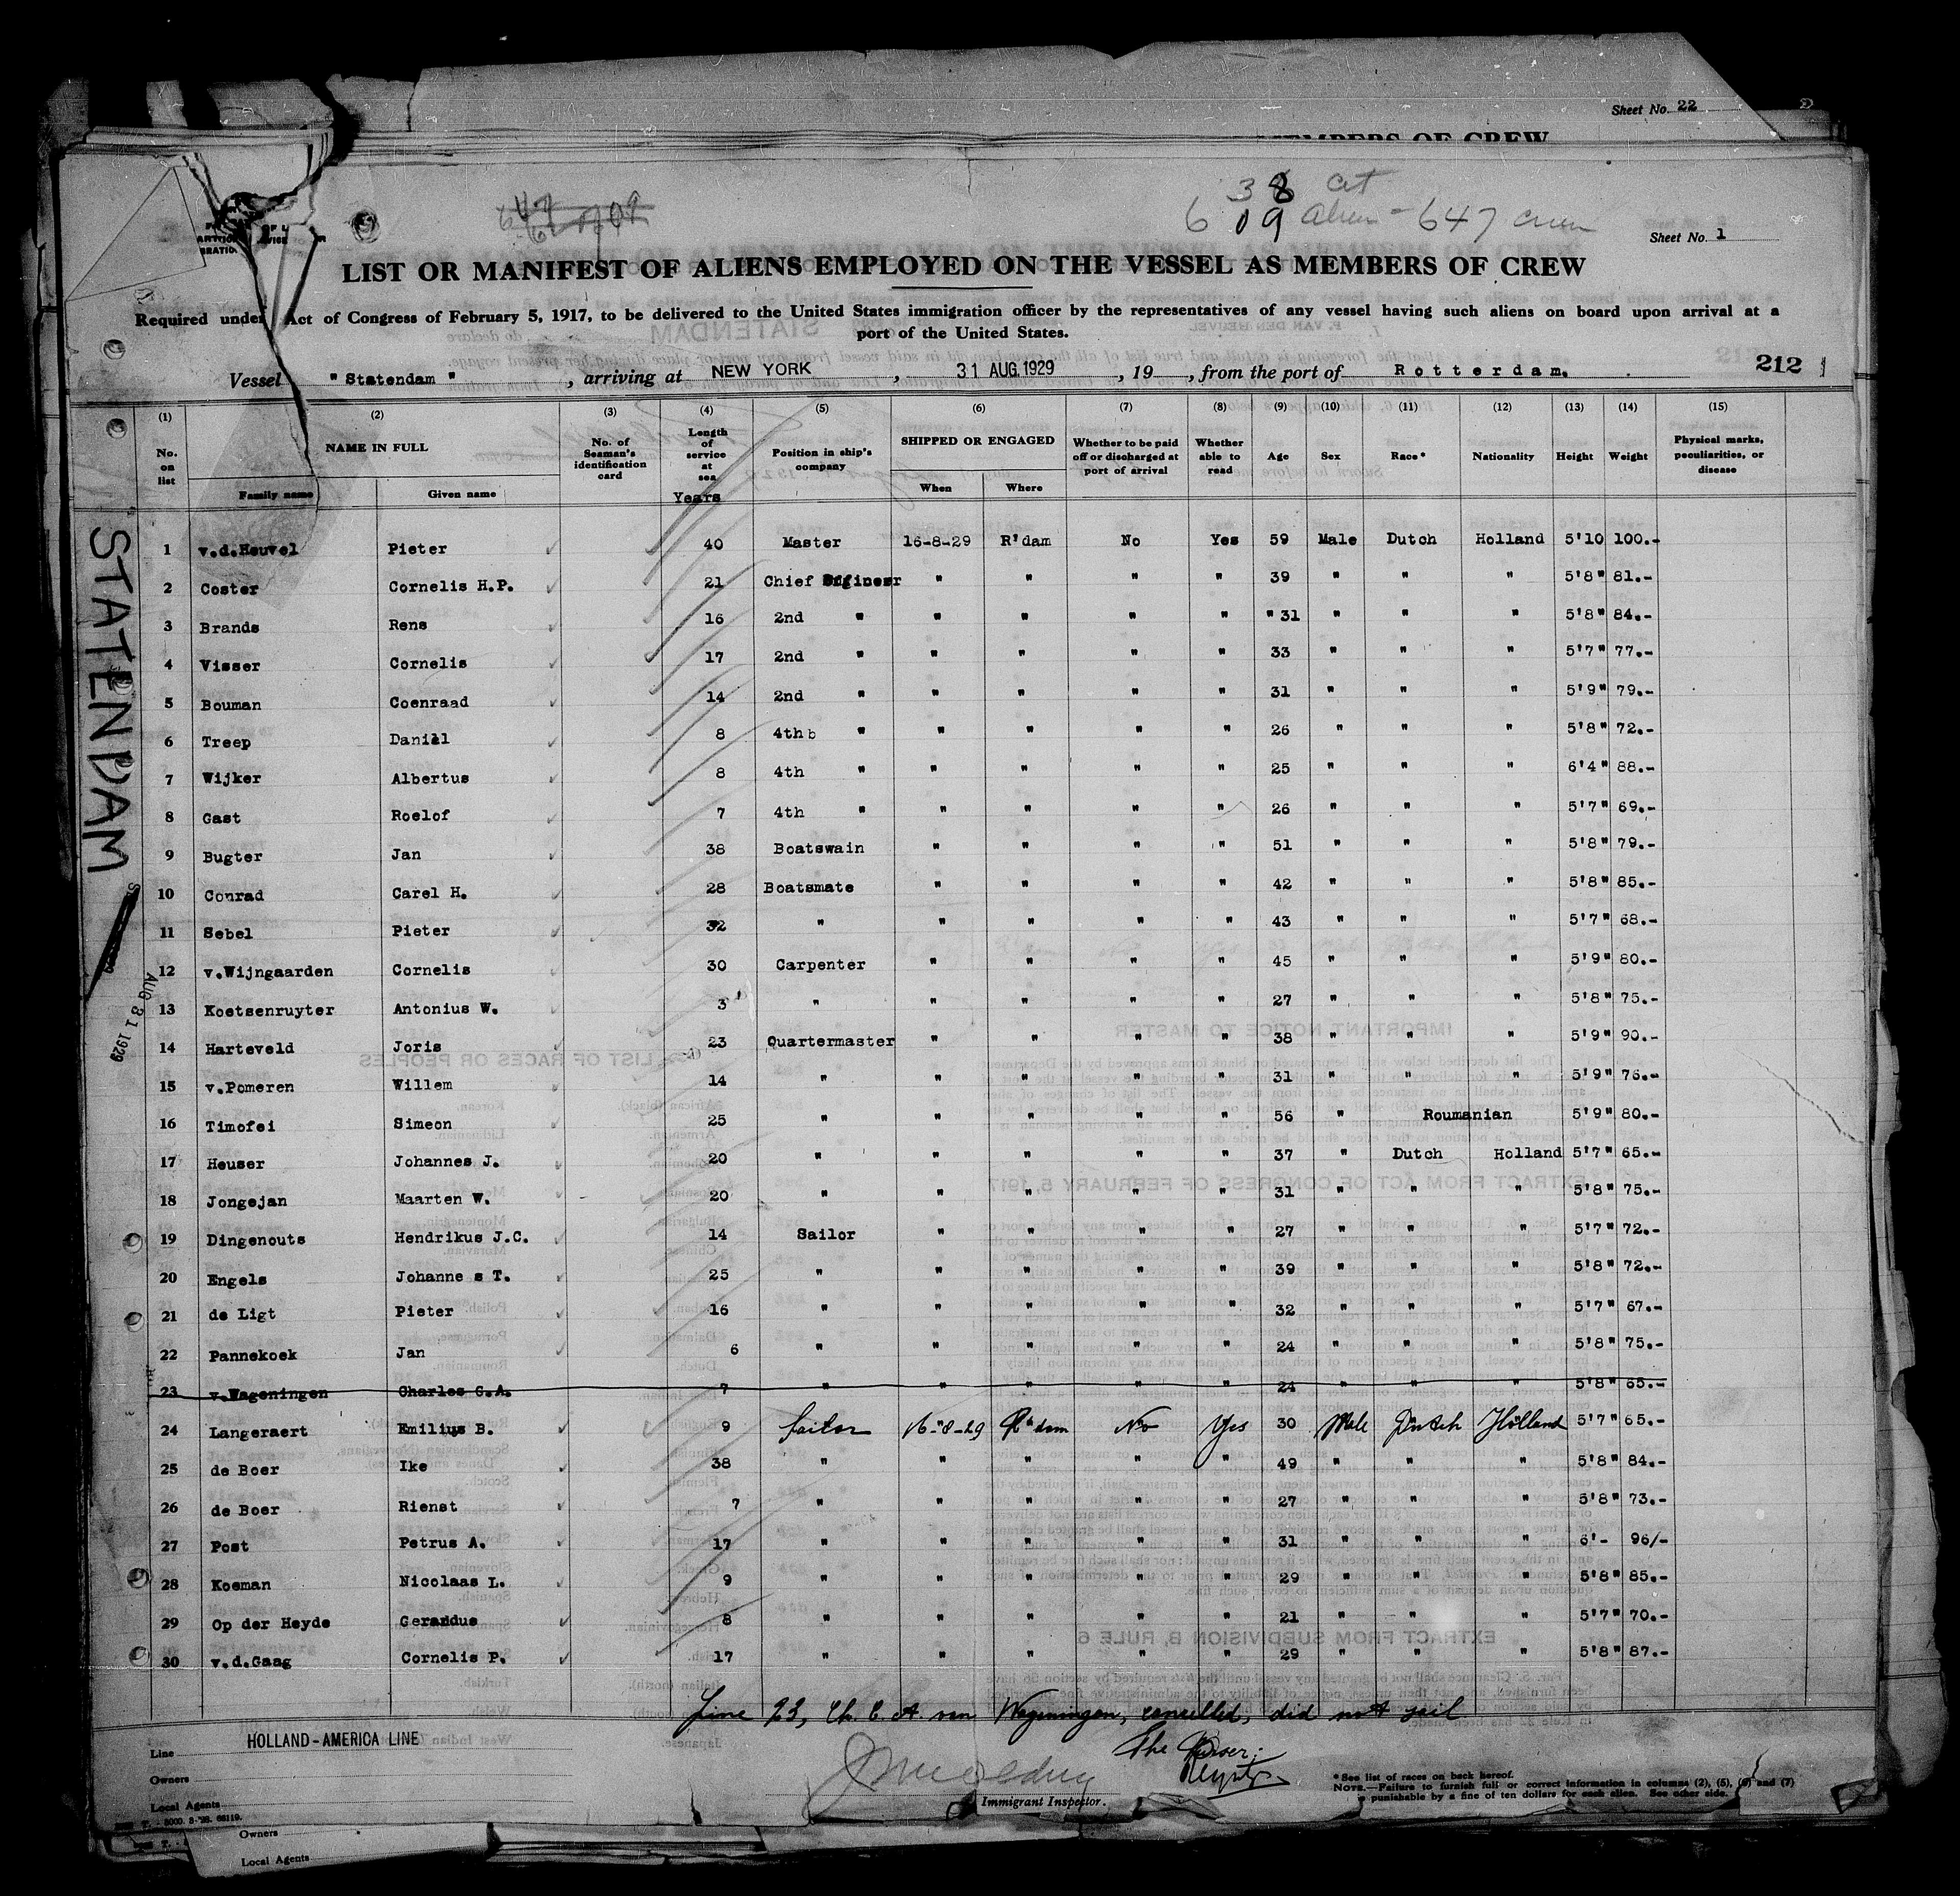 Sheet No. 22
MEMBERS OF CREW
38 cit
609 alien - 647 crew
Sheet No. 1
LIST OR MANIFEST OF ALIENS EMPLOYED ON THE VESSEL AS MEMBERS OF CREW
Required under Act of Congress of February 5, 1917, to be delivered to the United States immigration officer by the representatives of any vessel having such aliens on board upon arrival at a
port of the United States.
Vessel "Statendam", arriving at NEW YORK, 31 AUG. 1929, 19 , from the port of Rotterdam. 212
(1) (2) (3) (4) (5) (6) (7) (8) (9) (10) (11) (12) (13) (14) (15)
No. on list NAME IN FULL No. of Seaman's identification card Length of service at sea Position in ship's company SHIPPED OR ENGAGED Whether to be paid off or discharged at port of arrival Whether able to read Age Sex Race* Nationality Height Weight Physical marks, peculiarities, or disease
Family name Given name Years When Where
1 v.d.Heuvel Pieter 40 Master 16-8-29 R'dam No Yes 59 Male Dutch Holland 5'10 100.-
2 Coster Cornelis H.P. 21 Chief Engineer " " " " 39 " " " 5'8" 81.-
3 Brands Rens 16 2nd " " " " " " 31 " " " 5'8" 84.-
4 Visser Cornelis 17 2nd " " " " " 33 " " " 5'7" 77.-
5 Bouman Coenraad 14 2nd " " " " " 31 " " " 5'9" 79.-
6 Treep Daniël 8 4th b " " " " " 26 " " " 5'8" 72.-
7 Wijker Albertus 8 4th " " " " " 25 " " " 6'4" 88.-
8 Gast Roelof 7 4th " " " " " 26 " " " 5'7" 69.-
9 Bugter Jan 38 Boatswain " " " " 51 " " " 5'8" 79.-
10 Conrad Carel H. 28 Boatsmate " " " " 42 " " " 5'8" 85.-
11 Sebel Pieter 32 " " " " " 43 " " " 5'7" 68.-
12 v.Wijngaarden Cornelis 30 Carpenter " " " " 45 " " " 5'9" 80.-
13 Koetsenruyter Antonius W. 3 " " " " " 27 " " " 5'8" 75.-
14 Harteveld Joris 23 Quartermaster " " " " 38 " " " 5'9" 90.-
15 v.Pomeren Willem 14 " " " " " 31 " " " 5'9" 76.-
16 Timofei Simeon 25 " " " " " 56 " Roumanian 5'9" 80.-
17 Heuser Johannes J. 20 " " " " " 37 " Dutch Holland 5'7" 65.-
18 Jongejan Maarten W. 20 " " " " " 31 " " " 5'8" 75.-
19 Dingenouts Hendrikus J.C. 14 Sailor " " " " 27 " " " 5'7" 72.-
20 Engels Johanne s T. 25 " " " " " 39 " " " 5'8" 72.-
21 de Ligt Pieter 16 " " " " " 32 " " " 5'7" 67.-
22 Pannekoek Jan 6 " " " " " 24 " " " 5'8" 75.-
23 v.Wageningen Charles C.A. 7 " " " " " 24 " " " 5'8" 65.-
24 Langeraert Emilius B. 9 Sailor 16-8-29 R'dam No Yes 30 Male Dutch Holland 5'7" 65.-
25 de Boer Ike 38 " " " " " 49 " " " 5'8" 84.-
26 de Boer Rienst 7 " " " " " 27 " " " 5'8" 73.-
27 Post Petrus A. 17 " " " " " 31 " " " 6'- 96/-
28 Koeman Nicolaas L. 9 " " " " " 29 " " " 5'8" 85.-
29 Op der Heyde Gerardus 8 " " " " " 21 " " " 5'7" 70.-
30 v.d.Gaag Cornelis P. 17 " " " " " 29 " " " 5'8" 87.-
STATENDAM
AUG 31 1929
Line 23, Ch. C. A. van Wageningen, cancelled, did not sail
The Purser:
Line HOLLAND-AMERICA LINE
Owners
Local Agents
Immigrant Inspector.
*See list of races on back hereof.
NOTE.—Failure to furnish full or correct information in columns (2), (5), (6) and (7)
is punishable by a fine of ten dollars for each alien. See other side.
Owners
Local Agents